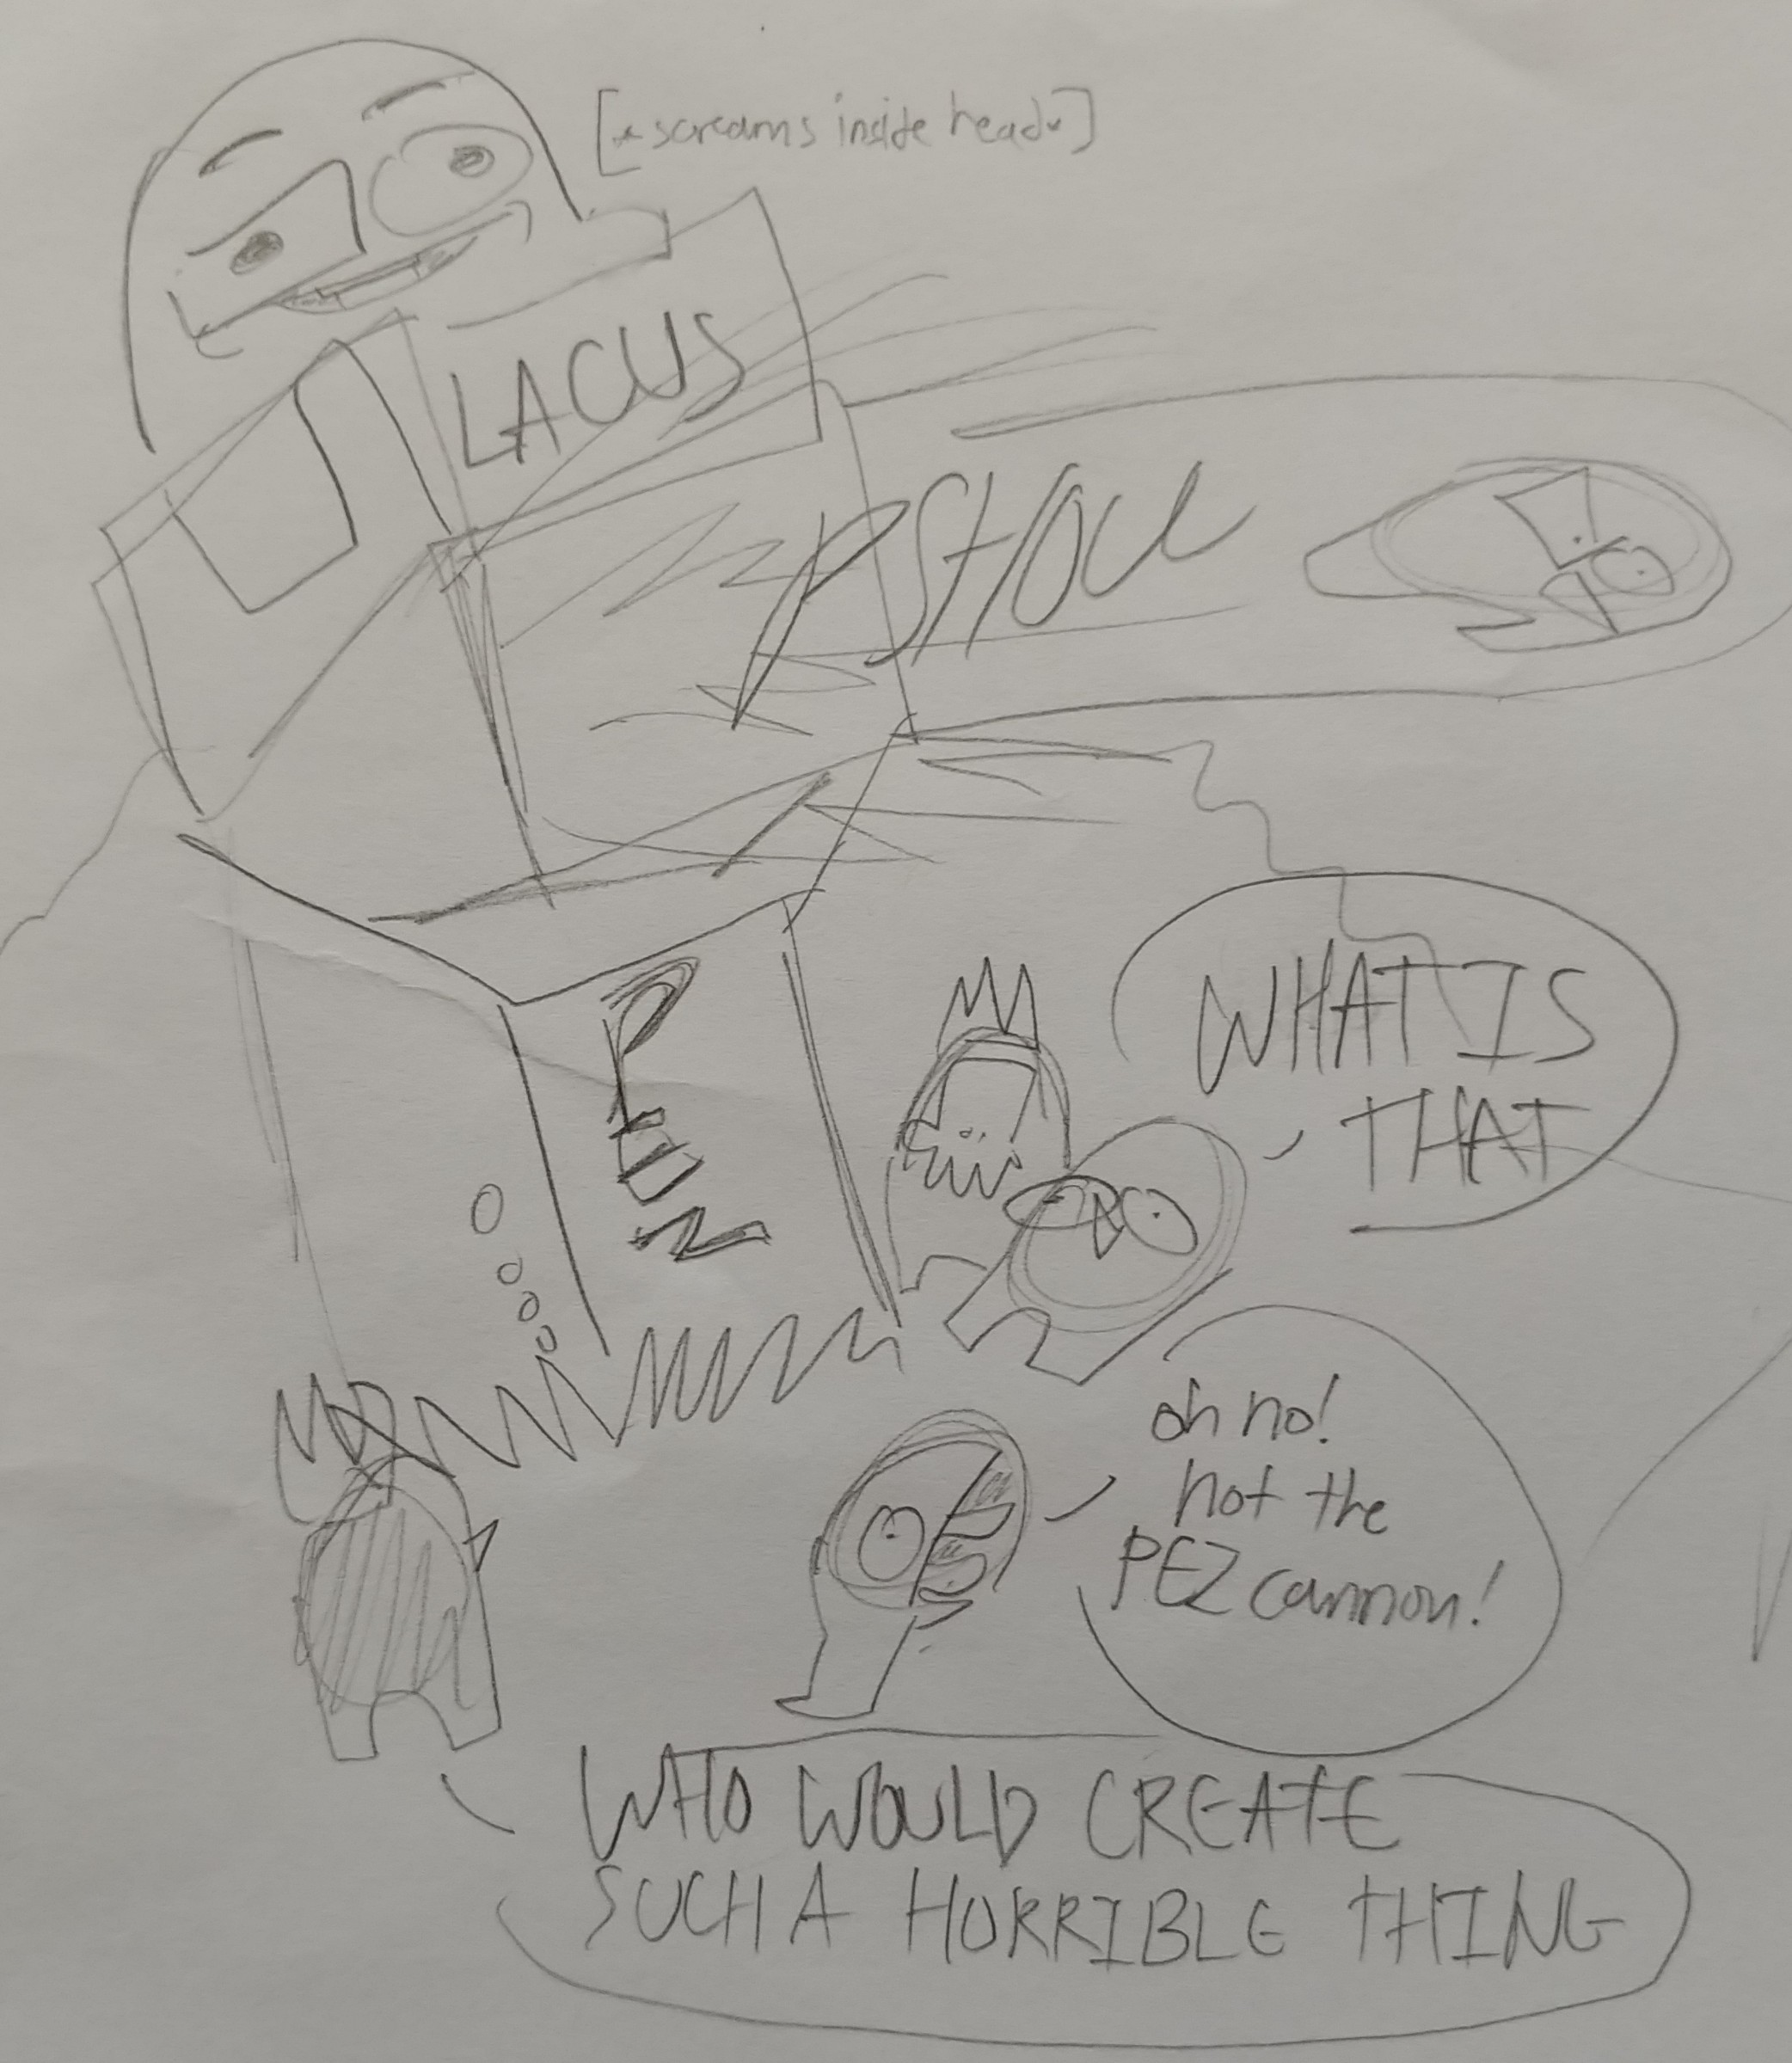 [*screams inside head*]
LACUS
PSHOU
PEZ
WHAT IS
THAT
oh no!
not the
PEZ cannon!
WHO WOULD CREATE
SUCH A HORRIBLE THING